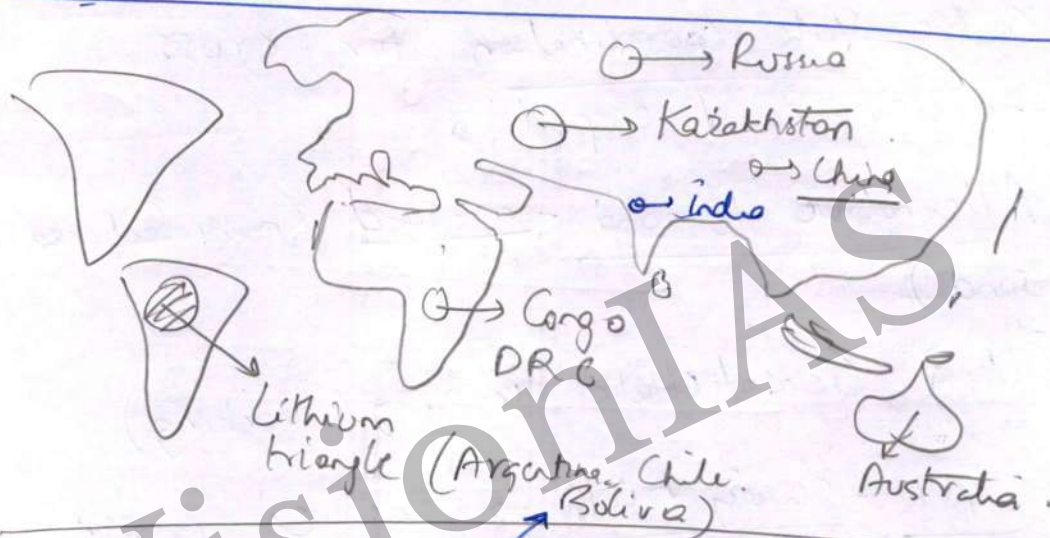 Russia
Kazakhstan
China
India
Congo
DRC
Lithium
triangle (Argentina, Chile.
Bolivia)
Australia.
VisionIAS